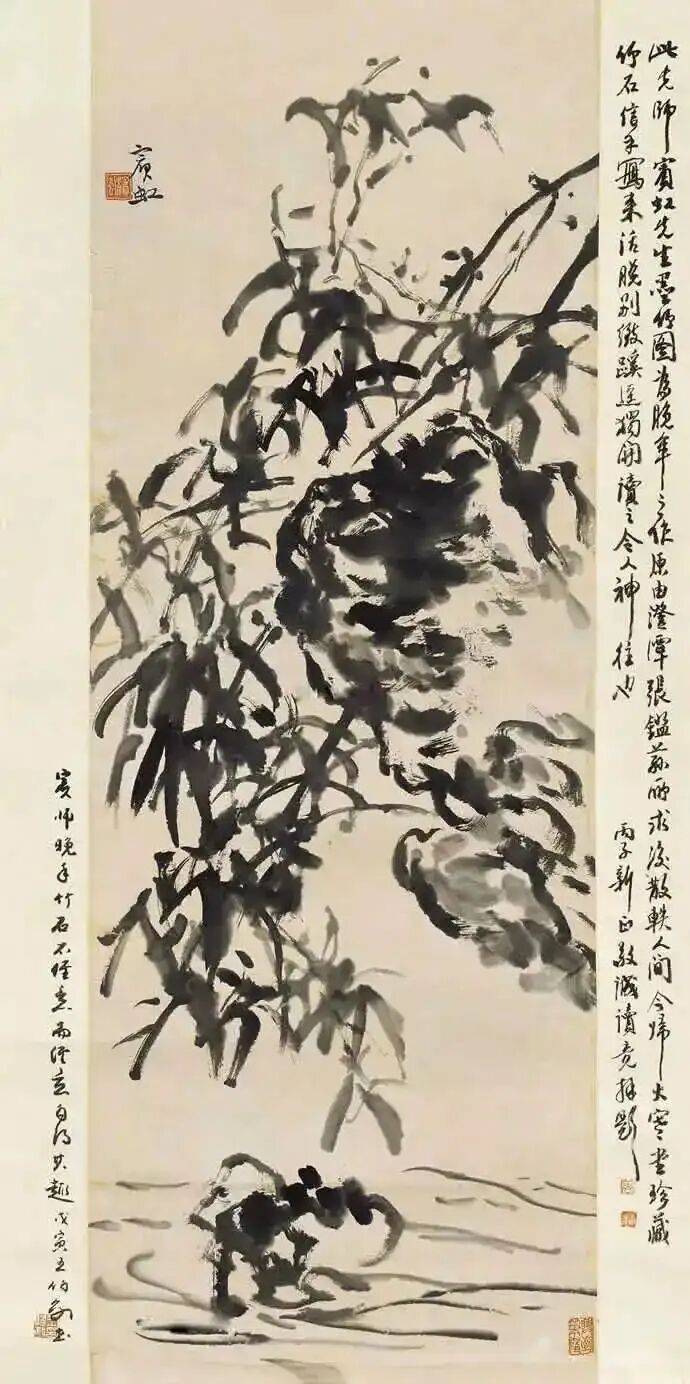 此先師賓虹先生墨竹圖為晚年之作原由澄潭張鑑蓀所求後散軼人間今歸大寒堂珍藏
竹石信手寫來活脫別緻蹊逕獨開讀之令人神往也
丙子新正敬誠讀竟拜題
賓虹
賓師晚年竹石不經意而經意自得其趣戊寅王伯敏書